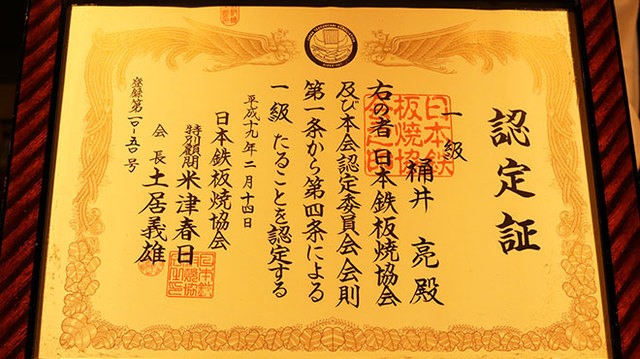 認定証
一級
桶井亮殿
右の者日本鉄板焼協会
及び本会認定委員会会則
第一条から第四条による
一級たることを認定する
平成十九年二月十四日
日本鉄板焼協会
特別顧問 米津春日
会長 土居義雄
登録第一〇-五〇号
日本鉄
板焼協
会之印